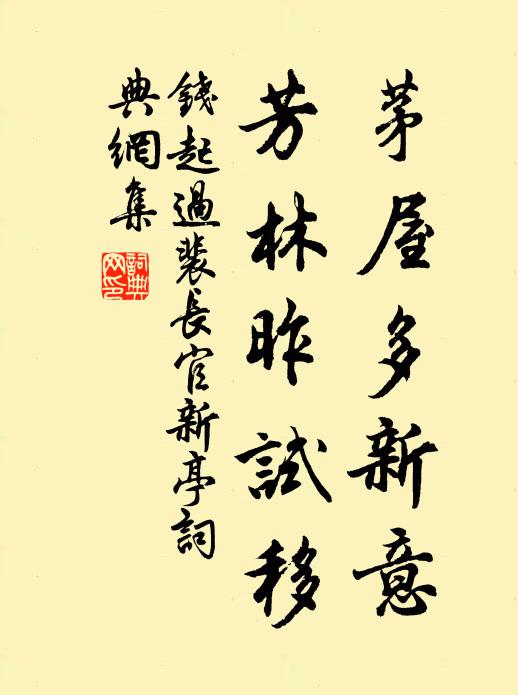 茅屋多新意
芳林昨試移
錢起過裴長官新亭詞
典網集
詞典
网印